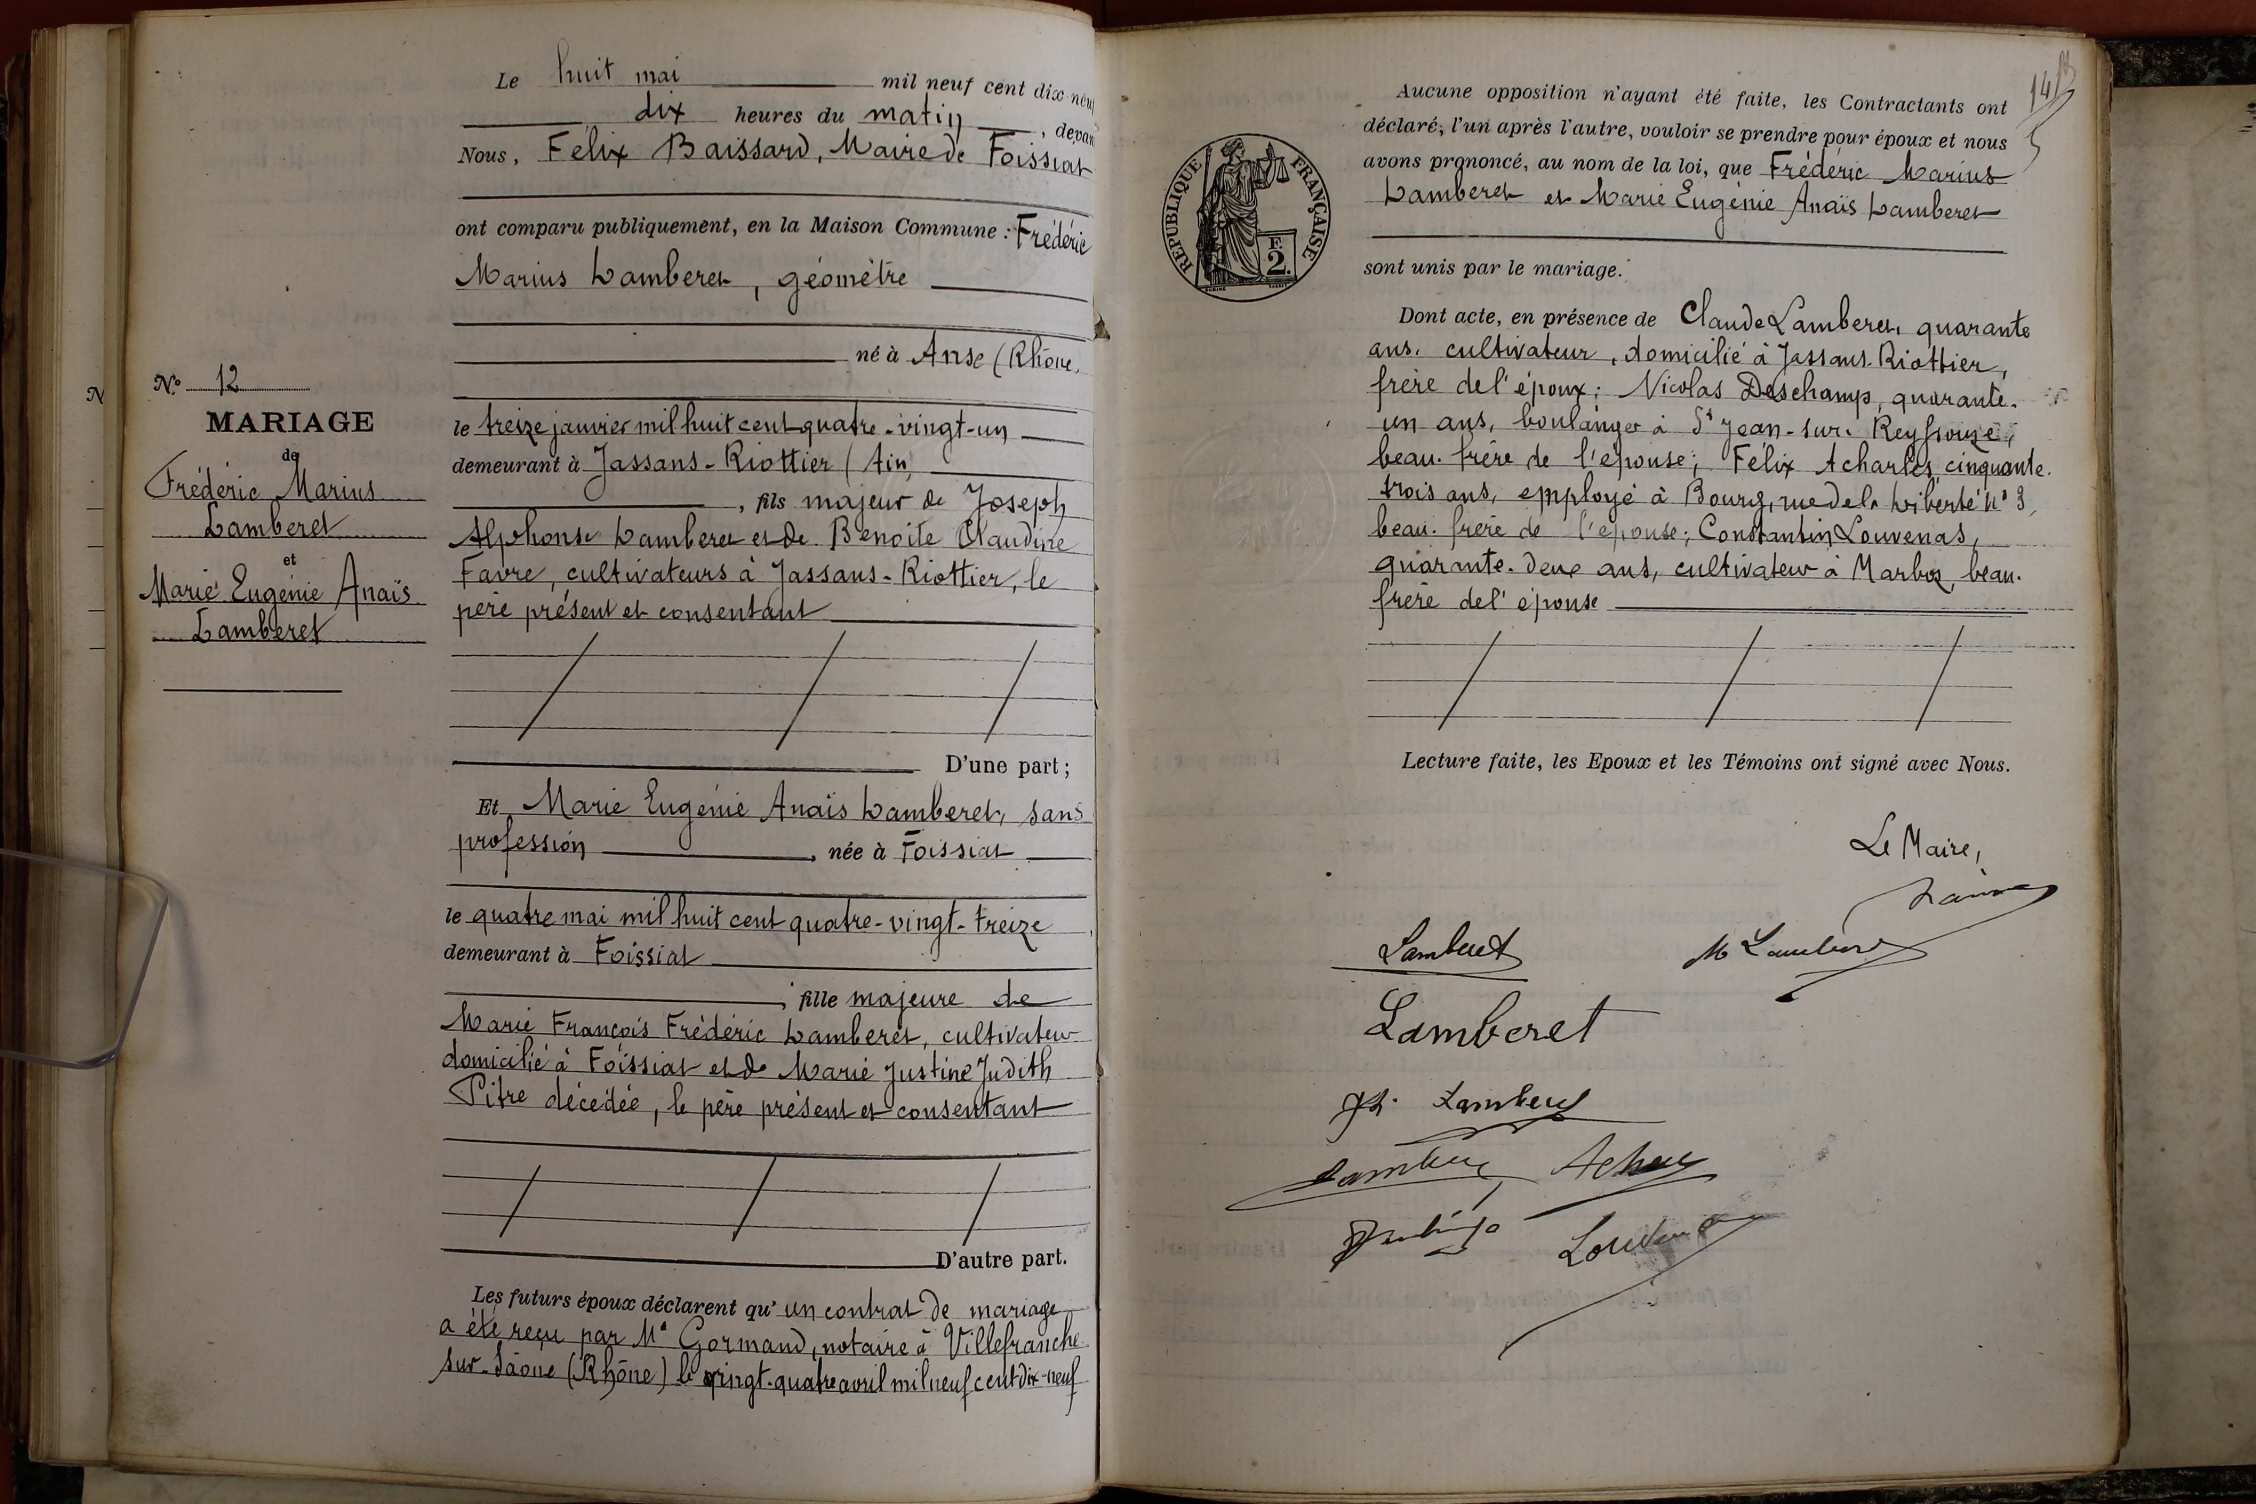 N
Nº 12
MARIAGE
de
Frédéric Marius
Lamberet
et
Marie Eugénie Anaïs
Lamberet
Le huit mai mil neuf cent dix-neuf
dix heures du matin, devant
Nous, Félix Baissard, Maire de Foissiat
ont comparu publiquement, en la Maison Commune : Frédéric
Marius Lamberet, géomètre
né à Anse (Rhône,
le treize janvier mil huit cent quatre-vingt-un
demeurant à Jassans-Riottier (Ain)
, fils majeur de Joseph
Alphonse Lamberet et de Benoite Claudine
Favre, cultivateurs à Jassans-Riottier, le
père présent et consentant
D'une part ;
Et Marie Eugénie Anaïs Lamberet, sans
profession, née à Foissiat
le quatre mai mil huit cent quatre-vingt-treize
demeurant à Foissiat
, fille majeure de
Marie François Frédéric Lamberet, cultivateur
domicilié à Foissiat et de Marie Justine Judith
Pitre décédée, le père présent et consentant
D'autre part.
Les futurs époux déclarent qu' un contrat de mariage
a été reçu par Me Gormand, notaire à Villefranche
sur-Saône (Rhône) le vingt-quatre avril mil neuf cent dix-neuf
14
RÉPUBLIQUE FRANÇAISE
F.
2.
Aucune opposition n'ayant été faite, les Contractants ont
déclaré, l'un après l'autre, vouloir se prendre pour époux et nous
avons prononcé, au nom de la loi, que Frédéric Marius
Lamberet et Marie Eugénie Anaïs Lamberet
sont unis par le mariage.
Dont acte, en présence de Claude Lamberet, quarante
ans, cultivateur, domicilié à Jassans-Riottier,
frère de l'époux ; Nicolas Deschamp, quarante-
un ans, boulanger à St Jean-sur-Reyssouze,
beau-frère de l'épouse ; Félix Acharles, cinquante-
trois ans, employé à Bourg, rue de la Liberté nº 3,
beau-frère de l'épouse ; Constantin Louvenas,
quarante-deux ans, cultivateur à Marboz, beau-
frère de l'épouse
Lecture faite, les Epoux et les Témoins ont signé avec Nous.
Le Maire,
Lamberet M Lamberet
Lamberet
Lamberet
Lamberet